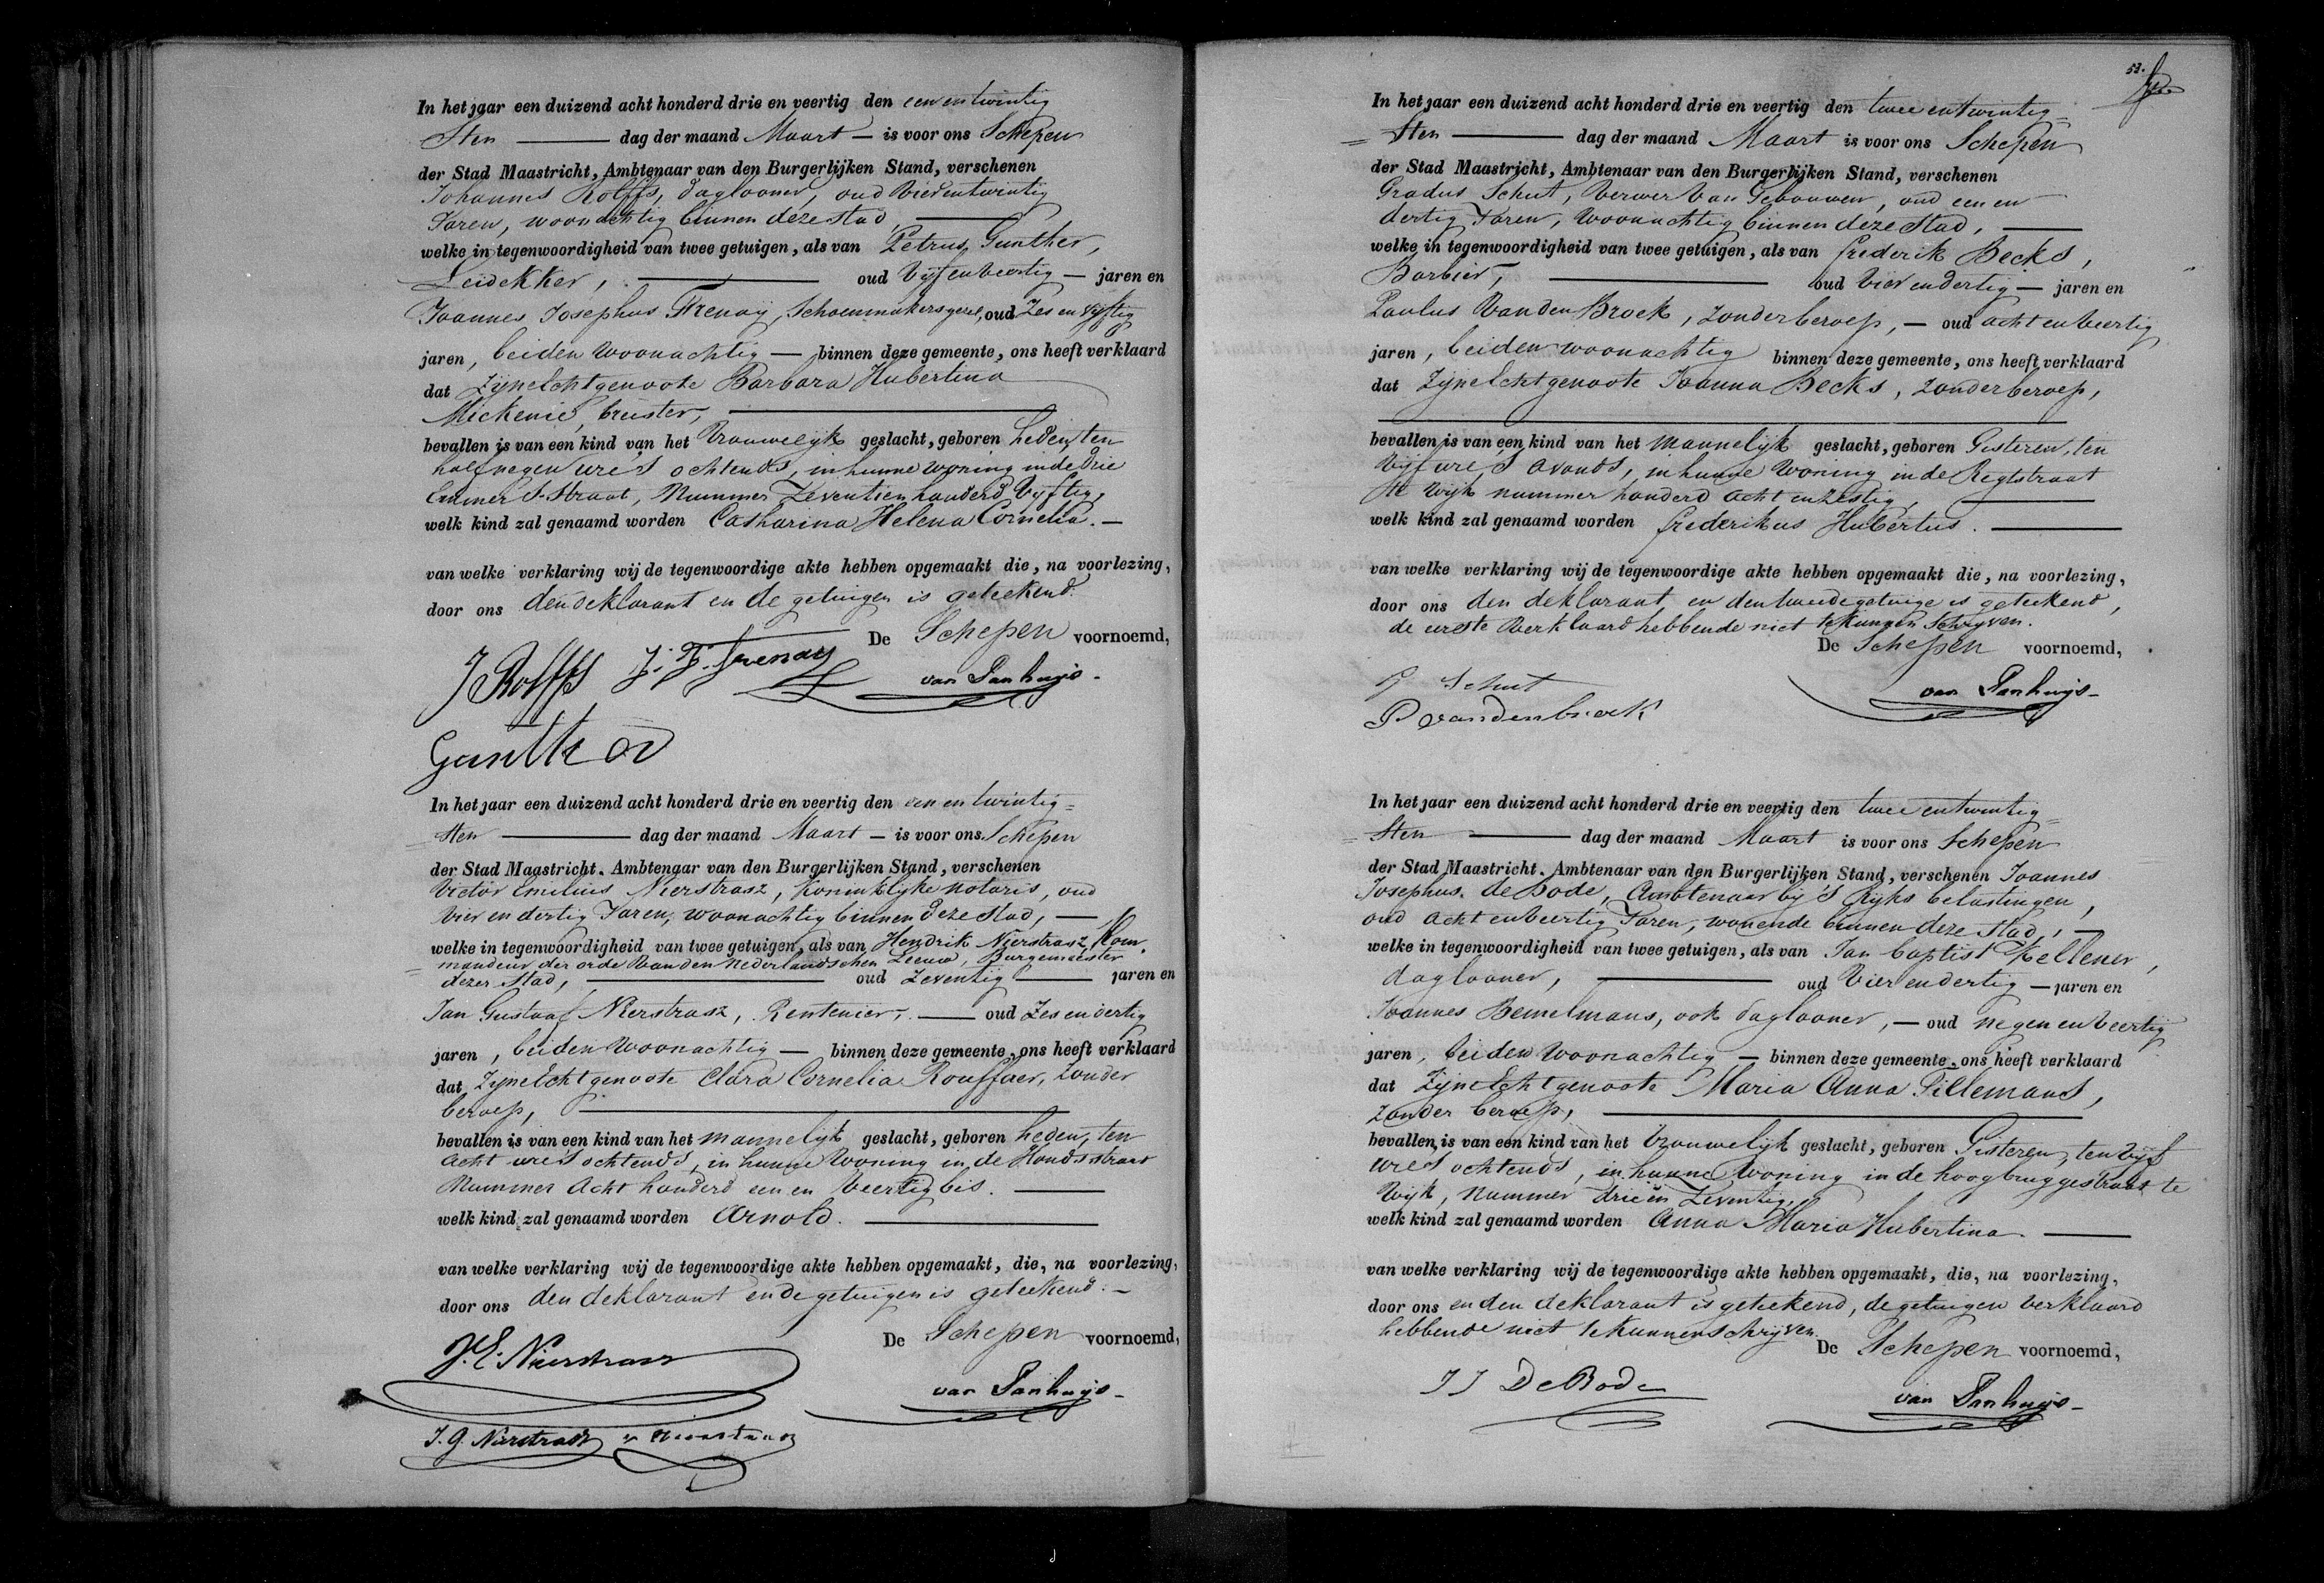 In het jaar een duizend acht honderd drie en veertig den een en twintig
sten dag der maand Maart is voor ons Schepen
der Stad Maastricht, Ambtenaar van den Burgerlijken Stand, verschenen
Johannes Rolffs, daglooner, oud vierentwintig
Jaren, woonachtig binnen deze stad,
welke in tegenwoordigheid van twee getuigen, als van Petrus Gunther,
Leidekker, oud vijfenveertig jaren en
Joannes Josephus Frenaij, Schoenmakersgezel, oud zes en vijftig
jaren, beiden woonachtig binnen deze gemeente, ons heeft verklaard
dat zijne Echtgenoote Barbara Hubertina
Mickenie, breister,
bevallen is van een kind van het vrouwelijk geslacht, geboren heden, ten
half negen ure 's ochtends, in hunne woning in de drie
Emmer S. Straat, Nummer Zeventien honderd vijftig,
welk kind zal genaamd worden Catharina Helena Cornelia.
van welke verklaring wij de tegenwoordige akte hebben opgemaakt die, na voorlezing,
door ons den deklarant en de getuigen is geteekend.
De Schepen voornoemd,
J Rolffs J. J. Frenay van Panhuys
Gunther
In het jaar een duizend acht honderd drie en veertig den een en twintig=
=sten dag der maand Maart is voor ons Schepen
der Stad Maastricht, Ambtenaar van den Burgerlijken Stand, verschenen
Victor Emilius Nierstrasz, Koninklijke notaris, oud
vier en dertig Jaren, woonachtig binnen deze stad,
welke in tegenwoordigheid van twee getuigen, als van Hendrik Nierstrasz, Kom=
=mandeur der orde van den Nederlandschen Leeuw, Burgemeester
dezer Stad, oud zeventig jaren en
Jan Gustaaf Nierstrasz, Rentenier, oud zes en dertig
jaren, beiden woonachtig binnen deze gemeente, ons heeft verklaard
dat zijne Echtgenoote Clara Cornelia Rouffaer, zonder
beroep,
bevallen is van een kind van het mannelijk geslacht, geboren heden, ten
acht ure 's ochtends, in hunne woning in de Hondsstraat
Nummer Acht honderd een en veertig bis.
welk kind zal genaamd worden Arnold.
van welke verklaring wij de tegenwoordige akte hebben opgemaakt, die, na voorlezing,
door ons den deklarant en de getuigen is geteekend.
De Schepen voornoemd,
V. E. Nierstrasz
van Panhuys
J. G. Nierstrasz Nierstrasz
52.
In het jaar een duizend acht honderd drie en veertig den twee en twintig=
=sten dag der maand Maart is voor ons Schepen
der Stad Maastricht, Ambtenaar van den Burgerlijken Stand, verschenen
Gradus Schut, verwer van Gebouwen, oud een en
dertig Jaren, woonachtig binnen deze Stad,
welke in tegenwoordigheid van twee getuigen, als van frederik Becks,
Barbier, oud vier en dertig jaren en
Paulus Van den Broek, zonder beroep, oud acht en veertig
jaren, beiden woonachtig binnen deze gemeente, ons heeft verklaard
dat zijne Echtgenoote Joanna Becks, zonder beroep,
bevallen is van een kind van het mannelijk geslacht, geboren Gisteren, ten
vijf ure 's avonds, in hunne woning in de Regtstraat
te Wijk nummer honderd acht en zestig,
welk kind zal genaamd worden frederikus Hubertus.
van welke verklaring wij de tegenwoordige akte hebben opgemaakt die, na voorlezing,
door ons den deklarant en den tweede getuige is geteekend,
de eerste verklaard hebbende niet te kunnen schrijven.
De Schepen voornoemd,
G Schut van Panhuys
P vandenbroek
In het jaar een duizend acht honderd drie en veertig den twee en twintig=
=sten dag der maand Maart is voor ons Schepen
der Stad Maastricht, Ambtenaar van den Burgerlijken Stand, verschenen Joannes
Josephus de Bode, Ambtenaar bij 's Rijks belastingen,
oud acht en veertig Jaren, wonende binnen deze stad,
welke in tegenwoordigheid van twee getuigen, als van Jan baptist Kellener,
daglooner, oud vier en dertig jaren en
Joannes Bemelmans, ook daglooner, oud negen en veertig
jaren, beiden woonachtig binnen deze gemeente, ons heeft verklaard
dat zijne Echtgenoote Maria Anna Pillemans,
zonder beroep,
bevallen is van een kind van het vrouwelijk geslacht, geboren Gisteren, ten vijf
ure 's ochtends, in hunne woning in de hoogbruggestraat te
Wijk, nummer drie en zeventig,
welk kind zal genaamd worden Anna Maria Hubertina.
van welke verklaring wij de tegenwoordige akte hebben opgemaakt, die, na voorlezing,
door ons en den deklarant is geteekend, de getuigen verklaard
hebbende niet te kunnen schrijven.
De Schepen voornoemd,
J J De Bode van Panhuys